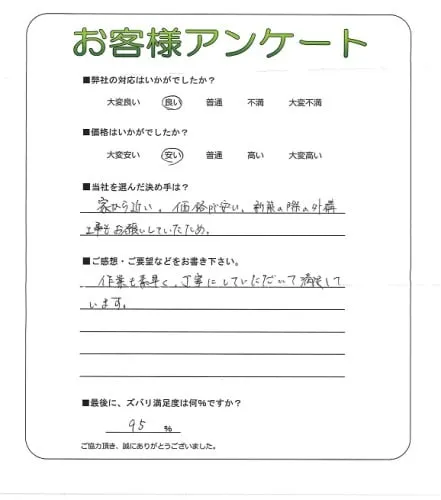 お客様アンケート
■弊社の対応はいかがでしたか？
大変良い 良い 普通 不満 大変不満
■価格はいかがでしたか？
大変安い 安い 普通 高い 大変高い
■当社を選んだ決め手は？
家から近い。価格が安い。新築の際の外構
工事もお願いしていたため。
■ご感想・ご要望などをお書き下さい。
作業も素早く、丁寧にしていただいて満足して
います。
■最後に、ズバリ満足度は何％ですか？
95 %
ご協力頂き、誠にありがとうございました。